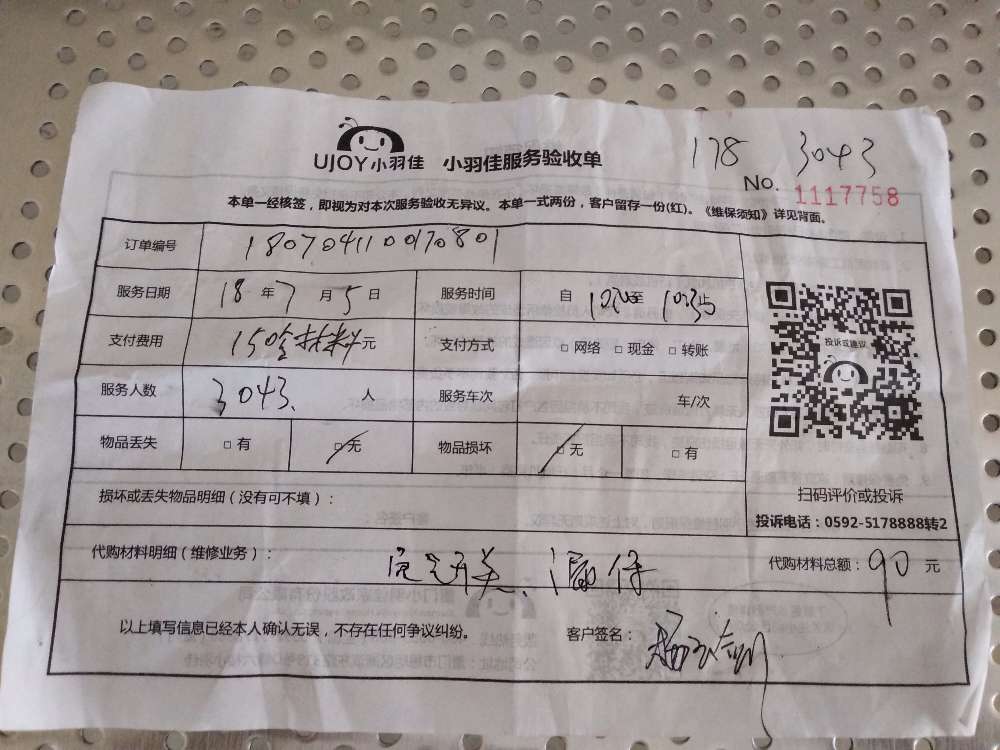 UJOY小羽佳 小羽佳服务验收单
178 3043
No. 1117758
本单一经核签，即视为对本次服务验收无异议。本单一式两份，客户留存一份(红)。《维保须知》详见背面。
订单编号 180704110070801
服务日期 18 年 7 月 5 日 服务时间 自 至
支付费用 150含材料元 支付方式 □ 网络 □ 现金 □ 转账
服务人数 3043. 人 服务车次 车/次
物品丢失 □ 有 □ 无 物品损坏 □ 无 □ 有
投诉或建议
扫码评价或投诉
投诉电话：0592-5178888转2
损坏或丢失物品明细（没有可不填）：
代购材料明细（维修业务）： 空气开关、漏保 代购材料总额： 90 元
以上填写信息已经本人确认无误，不存在任何争议纠纷。 客户签名：